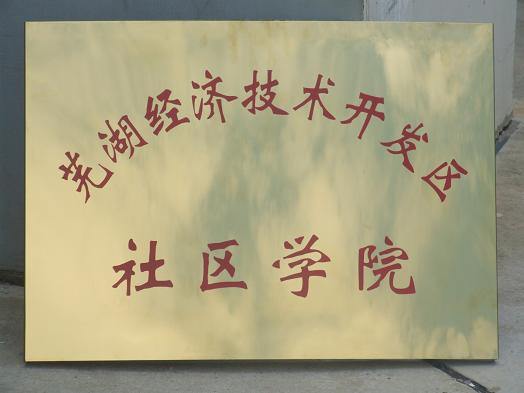 芜湖经济技术开发区
社区学院